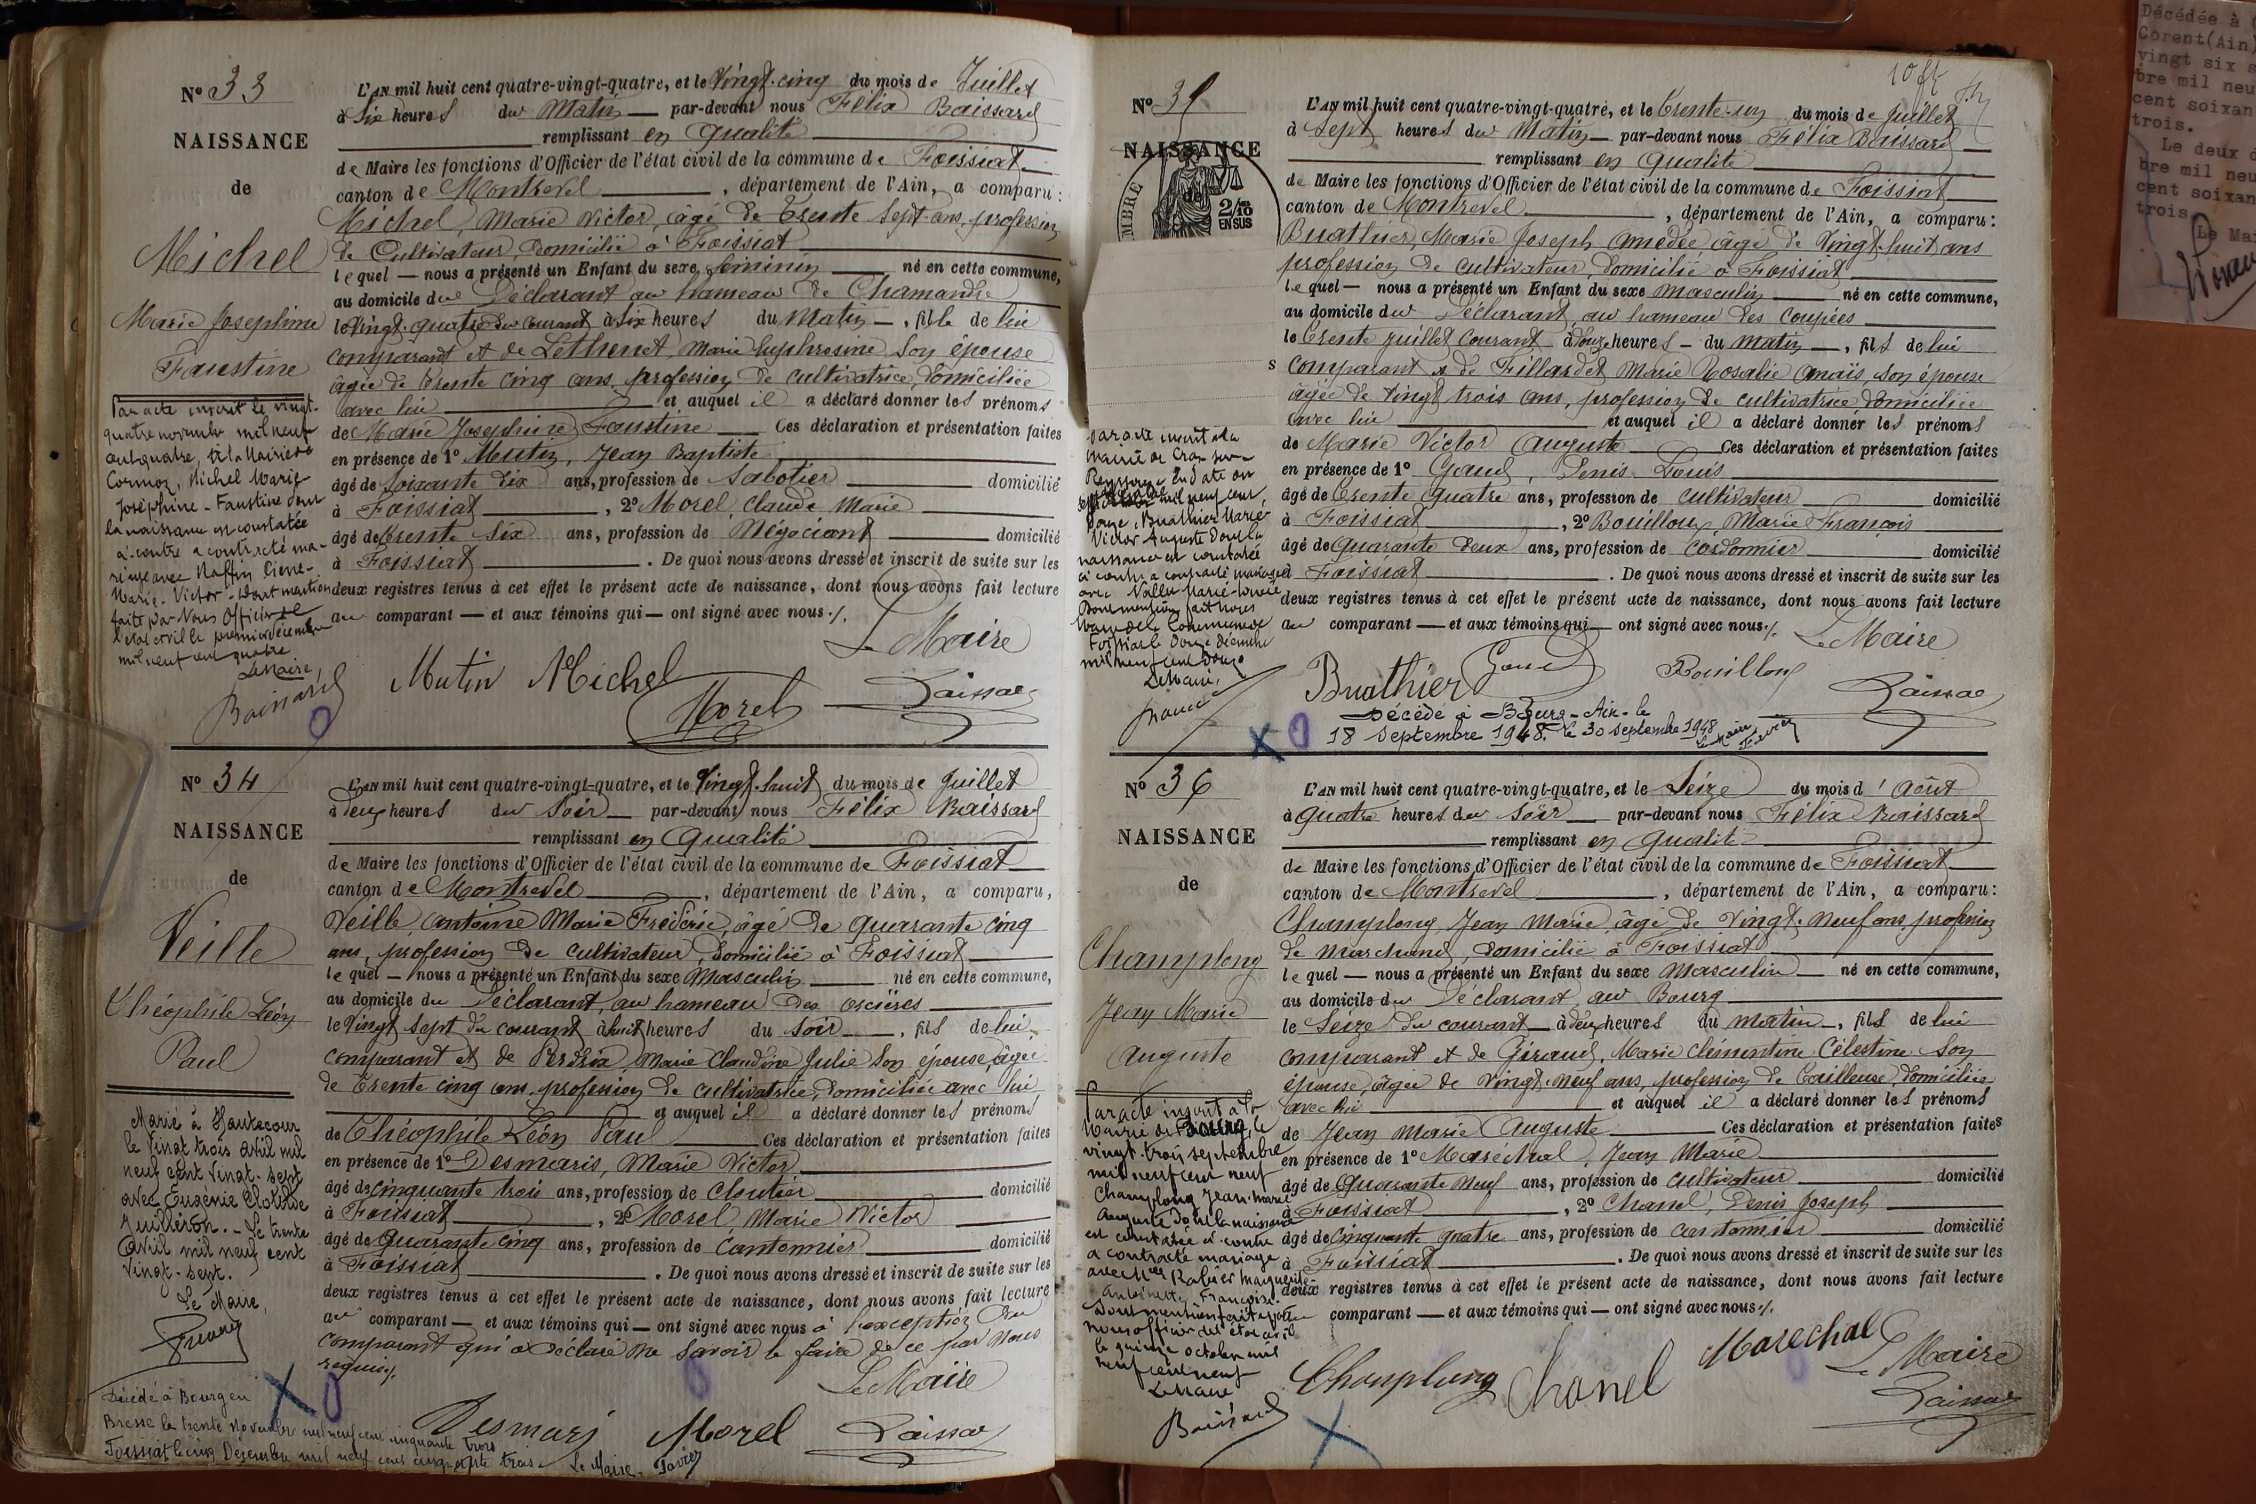 N° 33
NAISSANCE
de
Michel
Marie Joséphine
Faustine
Par acte inscrit le vingt-
quatre novembre mil neuf
cent quatre, à la Mairie de
Cormoz, Michel Marie
Joséphine-Faustine dont
la naissance est constatée
ci-contre a contracté ma-
riage avec Maffin Pierre-
Marie-Victor. Dont mention
faite par Nous Officier de
l'état civil le premier décembre
mil neuf cent quatre
Le Maire,
Baissard
L'AN mil huit cent quatre-vingt-quatre, et le Vingt-cinq du mois de Juillet
à Six heures du Matin par-devant nous Félix Baissard
remplissant en qualité
de Maire les fonctions d'Officier de l'état civil de la commune de Foissiat
canton de Montrevel, département de l'Ain, a comparu:
Michel, Marie Victor, âgé de Trente Sept ans, profession
de Cultivateur, domicilié à Foissiat
lequel nous a présenté un Enfant du sexe féminin né en cette commune,
au domicile du Déclarant au hameau de Chamandre
le Vingt-quatre du courant à six heures du Matin, fille de lui
comparant et de Lethenet, Marie Euphrosine son épouse
âgée de trente cinq ans, profession de cultivatrice, domiciliée
avec lui et auquel il a déclaré donner les prénoms
de Marie Joséphine Faustine Ces déclaration et présentation faites
en présence de 1° Mutin, Jean Baptiste
âgé de Soixante dix ans, profession de Sabotier domicilié
à Foissiat, 2° Morel, Claude Marie
âgé de trente six ans, profession de Négociant domicilié
à Foissiat. De quoi nous avons dressé et inscrit de suite sur les
deux registres tenus à cet effet le présent acte de naissance, dont nous avons fait lecture
au comparant et aux témoins qui ont signé avec nous ./.
Le Maire
Mutin Michel
Morel
Baissard
N° 34
NAISSANCE
de
Veille
Théophile Léon
Paul
Marié à Hautecour
le vingt trois avril mil
neuf cent vingt-sept
avec Eugénie Clotilde
Juilléron. - Le trente
avril mil neuf cent
vingt-sept.
Le Maire,
Décédé à Bourg en
Bresse le trente novembre mil neuf cent cinquante trois
Foissiat le cinq Décembre mil neuf cent cinquante trois. Le Maire.
L'AN mil huit cent quatre-vingt-quatre, et le Vingt-huit du mois de Juillet
à deux heures du Soir par-devant nous Félix Baissard
remplissant en qualité
de Maire les fonctions d'Officier de l'état civil de la commune de Foissiat
canton de Montrevel, département de l'Ain, a comparu,
Veille, Antoine Marie Frédéric, âgé de quarante cinq
ans, profession de cultivateur, domicilié à Foissiat
lequel nous a présenté un Enfant du sexe Masculin né en cette commune,
au domicile du Déclarant, au hameau des orcières
le Vingt sept du courant à huit heures du soir, fils de lui
comparant et de Perdrix, Marie Claudine Julie son épouse, âgée
de trente cinq ans, profession de cultivatrice, domiciliée avec lui
et auquel il a déclaré donner les prénoms
de Théophile Léon Paul Ces déclaration et présentation faites
en présence de 1° Desmaris, Marie Victor
âgé de cinquante trois ans, profession de cloutier domicilié
à Foissiat, 2° Morel, Marie Victor
âgé de quarante cinq ans, profession de cantonnier domicilié
à Foissiat. De quoi nous avons dressé et inscrit de suite sur les
deux registres tenus à cet effet le présent acte de naissance, dont nous avons fait lecture
au comparant et aux témoins qui ont signé avec nous à l'exception du
comparant qui a déclaré ne savoir le faire de ce par nous
requis ./.
Le Maire
Desmaris Morel Baissard
N° 35
NAISSANCE
de
2/10
EN SUS
s
Par acte inscrit à la
Mairie de Cras-sur-
Reyssouze en date du
mil neuf cent
douze, Buathier Marie-
Victor Auguste dont la
naissance est constatée
ci-contre a contracté mariage
avec Vallet Marie-Louise
Dont mention faite par nous
Maire de la Commune de
Foissiat le douze décembre
mil neuf cent douze
Le Maire,
L'AN mil huit cent quatre-vingt-quatre, et le Trente-un du mois de Juillet
à Sept heures du Matin par-devant nous Félix Baissard
remplissant en qualité
de Maire les fonctions d'Officier de l'état civil de la commune de Foissiat
canton de Montrevel, département de l'Ain, a comparu:
Buathier, Marie Joseph Amédée âgé de Vingt-huit ans
profession de cultivateur, domicilié à Foissiat
lequel nous a présenté un Enfant du sexe masculin né en cette commune,
au domicile du Déclarant, au hameau des Coupées
le trente juillet courant à douze heures du matin, fils de lui
comparant & de Fillardet Marie Rosalie Anaïs, son épouse
âgée de Vingt trois ans, profession de cultivatrice domiciliée
avec lui et auquel il a déclaré donner les prénoms
de Marie Victor Auguste Ces déclaration et présentation faites
en présence de 1° Gaud, Denis Louis
âgé de trente quatre ans, profession de cultivateur domicilié
à Foissiat, 2° Bouilloux Marie François
âgé de quarante deux ans, profession de cordonnier domicilié
à Foissiat. De quoi nous avons dressé et inscrit de suite sur les
deux registres tenus à cet effet le présent acte de naissance, dont nous avons fait lecture
au comparant et aux témoins qui ont signé avec nous ./.
Le Maire
Buathier Gaud Bouilloux Baissard
Décédé à Bourg-Ain-le
18 septembre 1948. le 30 septembre 1948
Le Maire
N° 36
NAISSANCE
de
Champlong
Jean Marie
Auguste
Par acte inscrit à la
Mairie de Bourg, le
vingt-trois septembre
mil neuf cent neuf
Champlong Jean-Marie
Auguste dont la naissance
est constatée ci-contre
a contracté mariage
avec Mlle Robier Marguerite
Antoinette Françoise.
Dont mention faite par
nous officier de l'état civil
le quinze octobre mil
neuf cent neuf
Le Maire
Baissard
L'AN mil huit cent quatre-vingt-quatre, et le Seize du mois d'Août
à quatre heures du soir par-devant nous Félix Baissard
remplissant en qualité
de Maire les fonctions d'Officier de l'état civil de la commune de Foissiat
canton de Montrevel, département de l'Ain, a comparu:
Champlong Jean Marie, âgé de Vingt-neuf ans, profession
de Marchand, domicilié à Foissiat
lequel nous a présenté un Enfant du sexe Masculin né en cette commune,
au domicile du Déclarant au Bourg
le Seize du courant à deux heures du matin, fils de lui
comparant et de Giraud, Marie Clémentine Célestine son
épouse, âgée de Vingt-neuf ans, profession de Tailleuse, domiciliée
avec lui et auquel il a déclaré donner les prénoms
de Jean Marie Auguste Ces déclaration et présentation faites
en présence de 1° Maréchal, Jean Marie
âgé de Quarante Neuf ans, profession de cultivateur domicilié
à Foissiat, 2° Chanel, Denis Joseph
âgé de cinquante quatre ans, profession de cantonnier domicilié
à Foissiat. De quoi nous avons dressé et inscrit de suite sur les
deux registres tenus à cet effet le présent acte de naissance, dont nous avons fait lecture
comparant et aux témoins qui ont signé avec nous ./.
Champlong Chanel Marechal
Le Maire
Baissard
Décédée à
Corent(Ain)
vingt six s
bre mil neu
cent soixan
trois.
Le deux d
bre mil neu
cent soixan
trois.
Le Mai